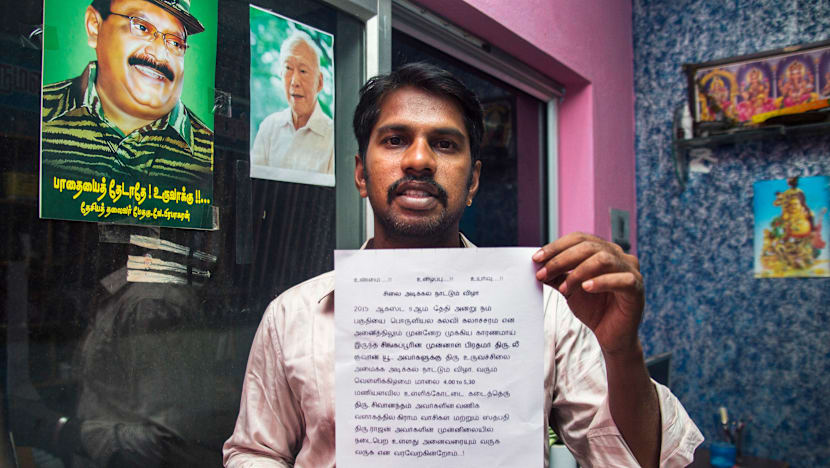 பாதையைத் தேடாதே ! உருவாக்கு !!...
தேசியத் தலைவர் மேதகு-வே.பிரபாகரன்
உண்மை....!! உழைப்பு...!! உயர்வு...!!
சிலை அடிக்கல் நாட்டும் விழா
2015 ஆகஸ்ட் 9ஆம் தேதி அன்று நம்
பகுதியை பொருளியல் கல்வி கலாச்சரம் என
அனைத்திலும் முன்னேற முக்கிய காரணமாய்
இருந்த சிங்கப்பூரின் முன்னாள் பிரதமர் திரு. லீ
குவான் யூ.. அவர்களுக்கு திரு உருவச்சிலை
அமைக்க அடிக்கல் நாட்டும் விழா. வரும்
வெள்ளிக்கிழமை மாலை 4.00 to 5.30
மணியளவில உள்ளிக்கோட்டை கடைத்தெரு
திரு. சிவானந்தம் அவர்களின் வணிக
வளாகத்தில கிராம வாசிகள் மற்றும் ஸ்தபதி
திரு.ராஜன் அவர்களின் முன்னிலையில்
நடைபெற உள்ளது அனைவரையும் வருக
வருக என வரவேற்கின்றோம்..!